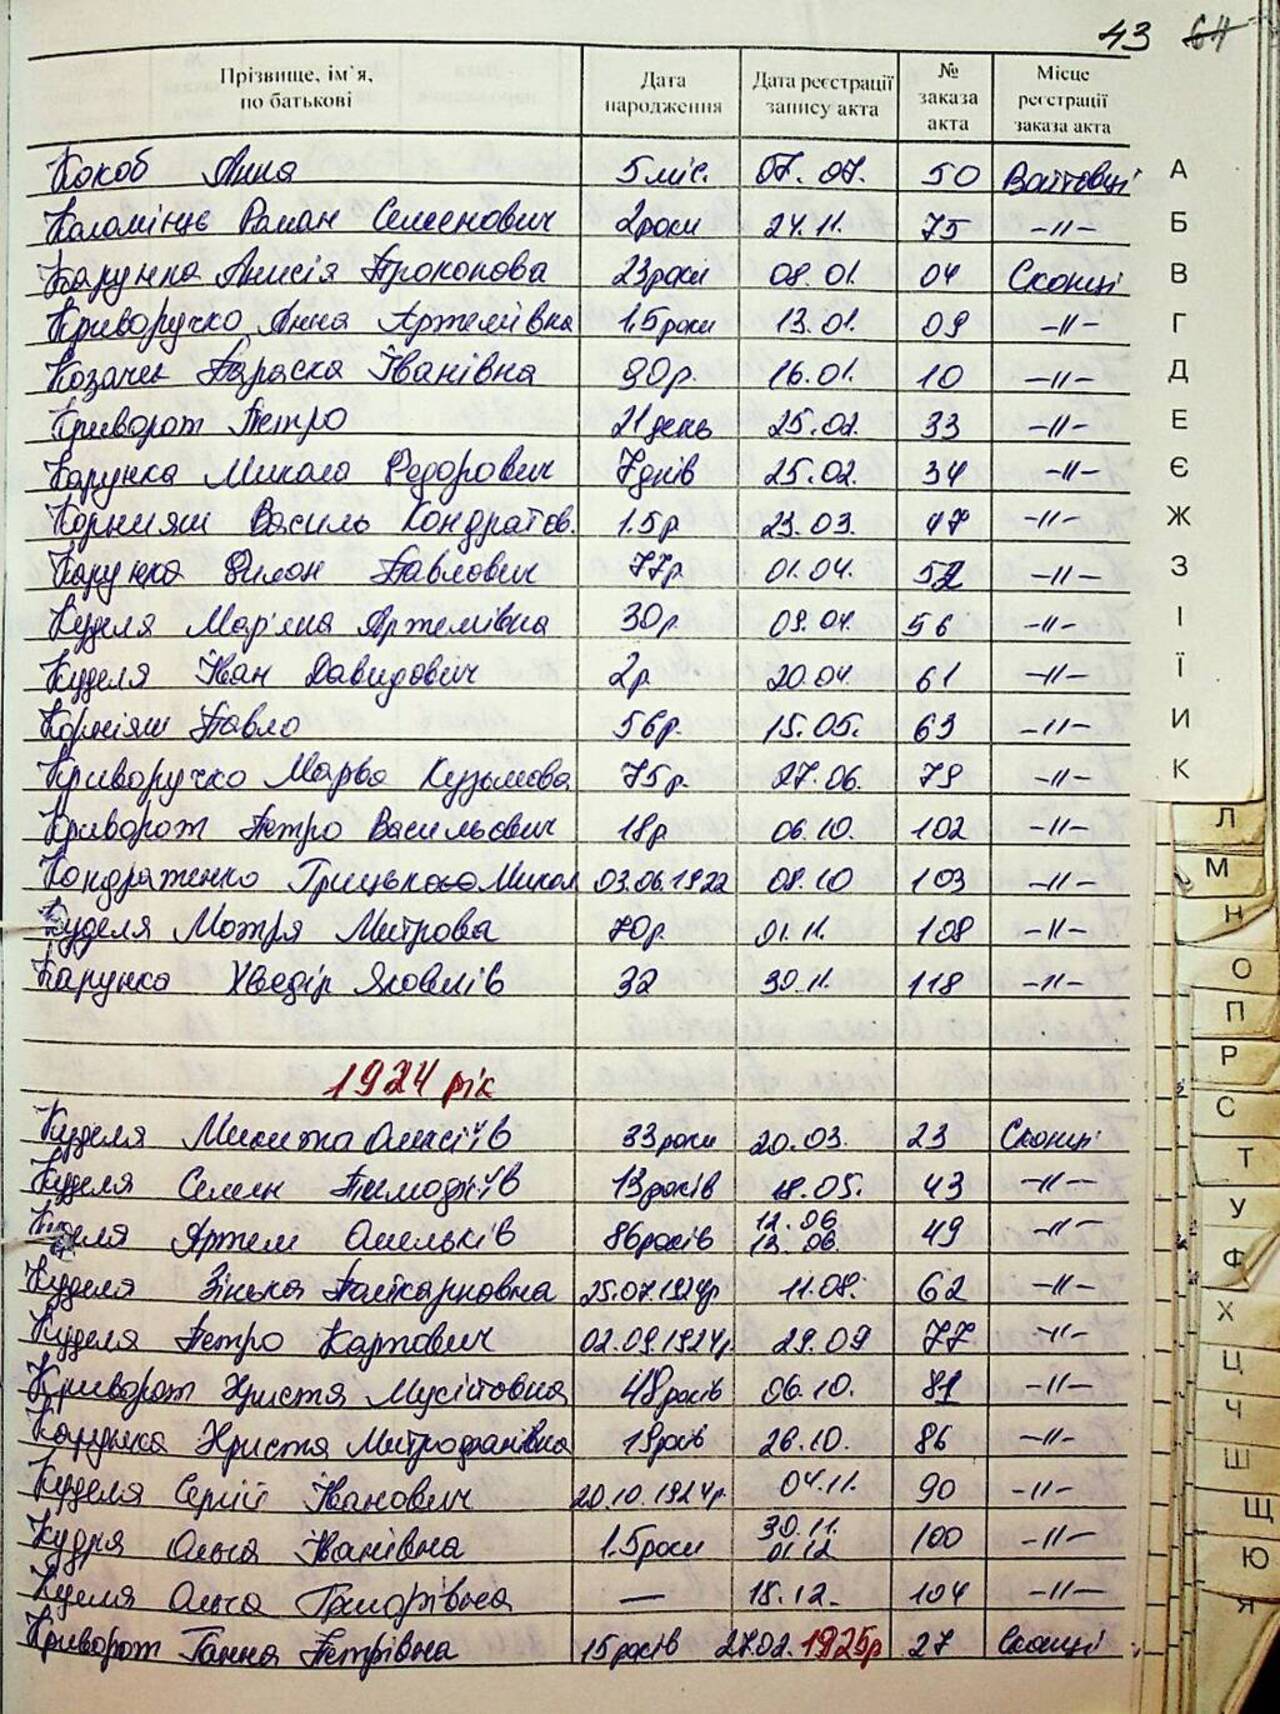 43 64
Прізвище, ім'я, по батькові Дата народження Дата реєстрації запису акта № заказа акта Місце реєстрації заказа акта
Кокоб Анна 5 міс. 07.07. 50 Войтовці
Коломієць Роман Семенович 2 роки 24.11. 75 -//-
Карунка Анисія Прокопова 23 роки 08.01. 04 Сконці
Криворучко Анна Артемівна 1.5 роки 13.01. 09 -//-
Козачек Параска Іванівна 90 р. 16.01. 10 -//-
Криворот Петро 21 день 25.02. 33 -//-
Карунка Микола Федорович 7 днів 25.02. 34 -//-
Корнияш Василь Кондратєв. 1.5 р. 23.03. 47 -//-
Карунка Филон Павлович 77 р. 01.04. 52 -//-
Куделя Мар'яна Артемівна 30 р. 09.04. 56 -//-
Куделя Іван Давидович 2 р. 20.04. 61 -//-
Корніяш Павло 56 р. 15.05. 63 -//-
Криворучко Марва Кузьмова 75 р. 27.06. 79 -//-
Криворот Петро Васильович 18 р. 06.10. 102 -//-
Кондратенко 03.06.1922 08.10 103 -//-
Куделя Мотря Митрова 70 р. 01.11. 108 -//-
Карунка Хведір Яковлів 32 30.11. 118 -//-
1924 рік
Куделя Микита Олексіїв 33 роки 20.03. 23 Сконці
Куделя Семен 13 років 18.05. 43 -//-
Куделя Артем Омельків 86 років 12.06 13.06. 49 -//-
Куделя Зінька 25.07.1924р 11.08. 62 -//-
Куделя Петро Карпович 02.09.1924р. 29.09 77 -//-
Криворот Христя Мусіївна 48 років 06.10. 81 -//-
Карунка Христя Митрофанівна 19 років 26.10. 86 -//-
Куделя Сергій Іванович 20.10.1924р. 04.11. 90 -//-
Кудря Ольга Іванівна 1.5 роки 30.11. 01.12 100 -//-
Куделя Ольга Григорівна — 18.12. 104 -//-
Криворот Ганна Петрівна 15 років 27.02.1925р 27 Сконці
А
Б
В
Г
Д
Е
Є
Ж
З
І
Ї
И
К
Л
М
Н
О
П
Р
С
Т
У
Ф
Х
Ц
Ч
Ш
Щ
Ю
Я